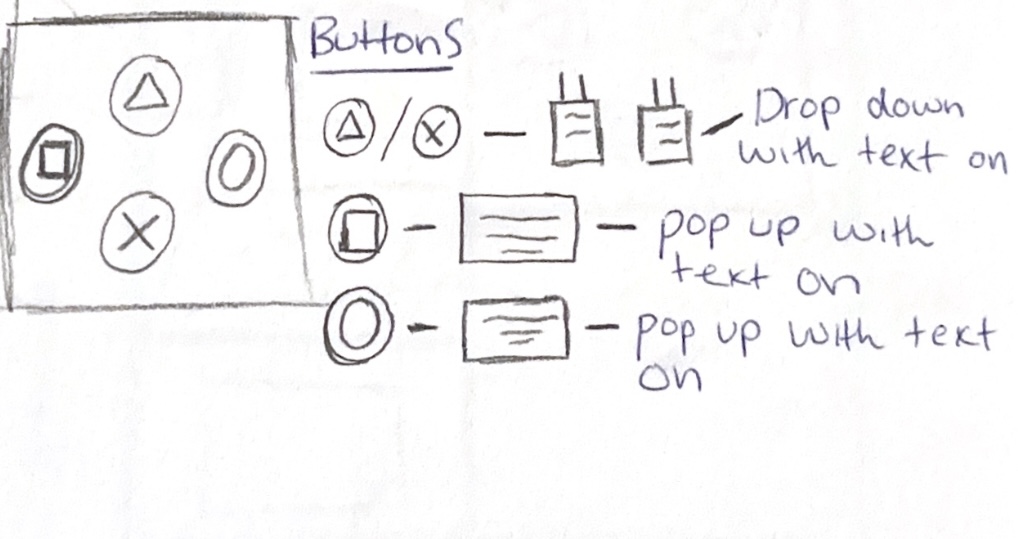 Buttons
Drop down
with text on
pop up with
text on
pop up with text
on